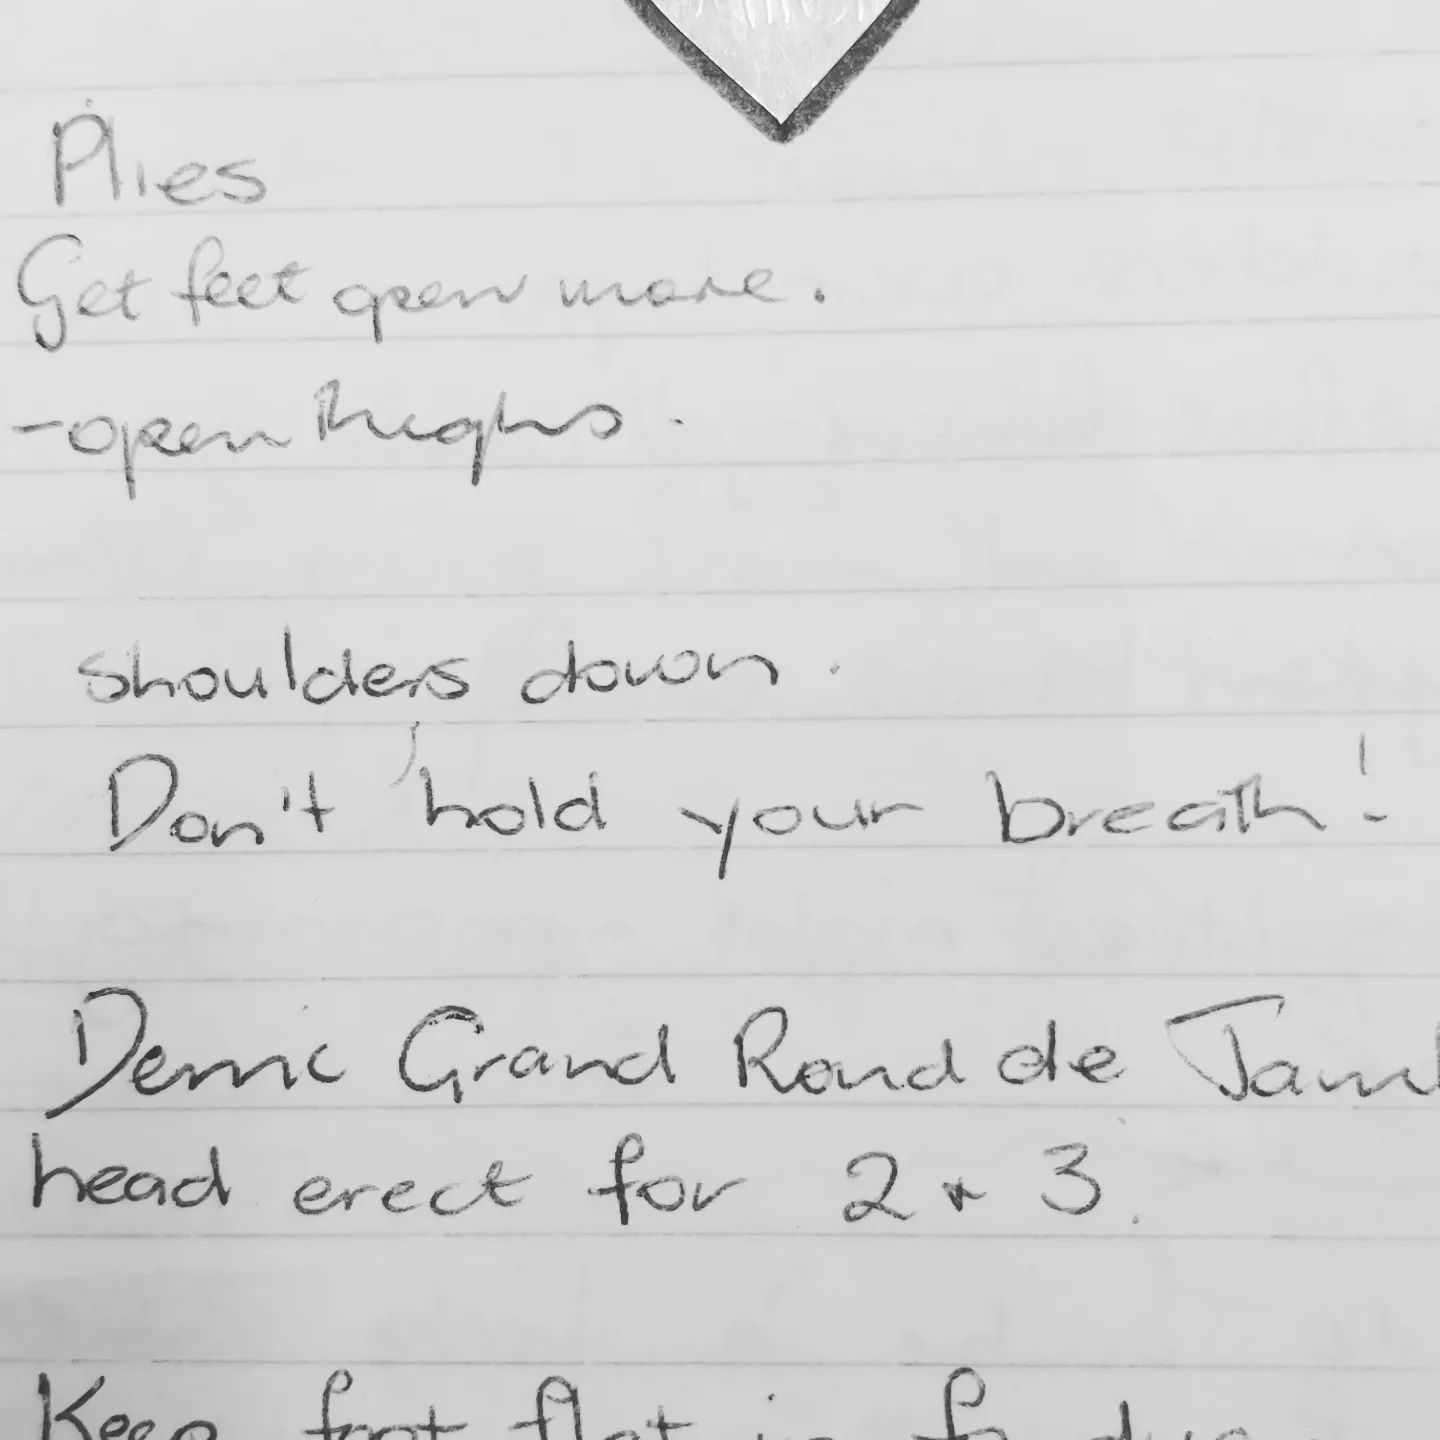 Plies
Get feet open more.
- open thighs.
shoulders down.
Don't hold your breath!
Demi Grand Rond de Jamb
head erect for 2 & 3.
Keep foot flat in fondue